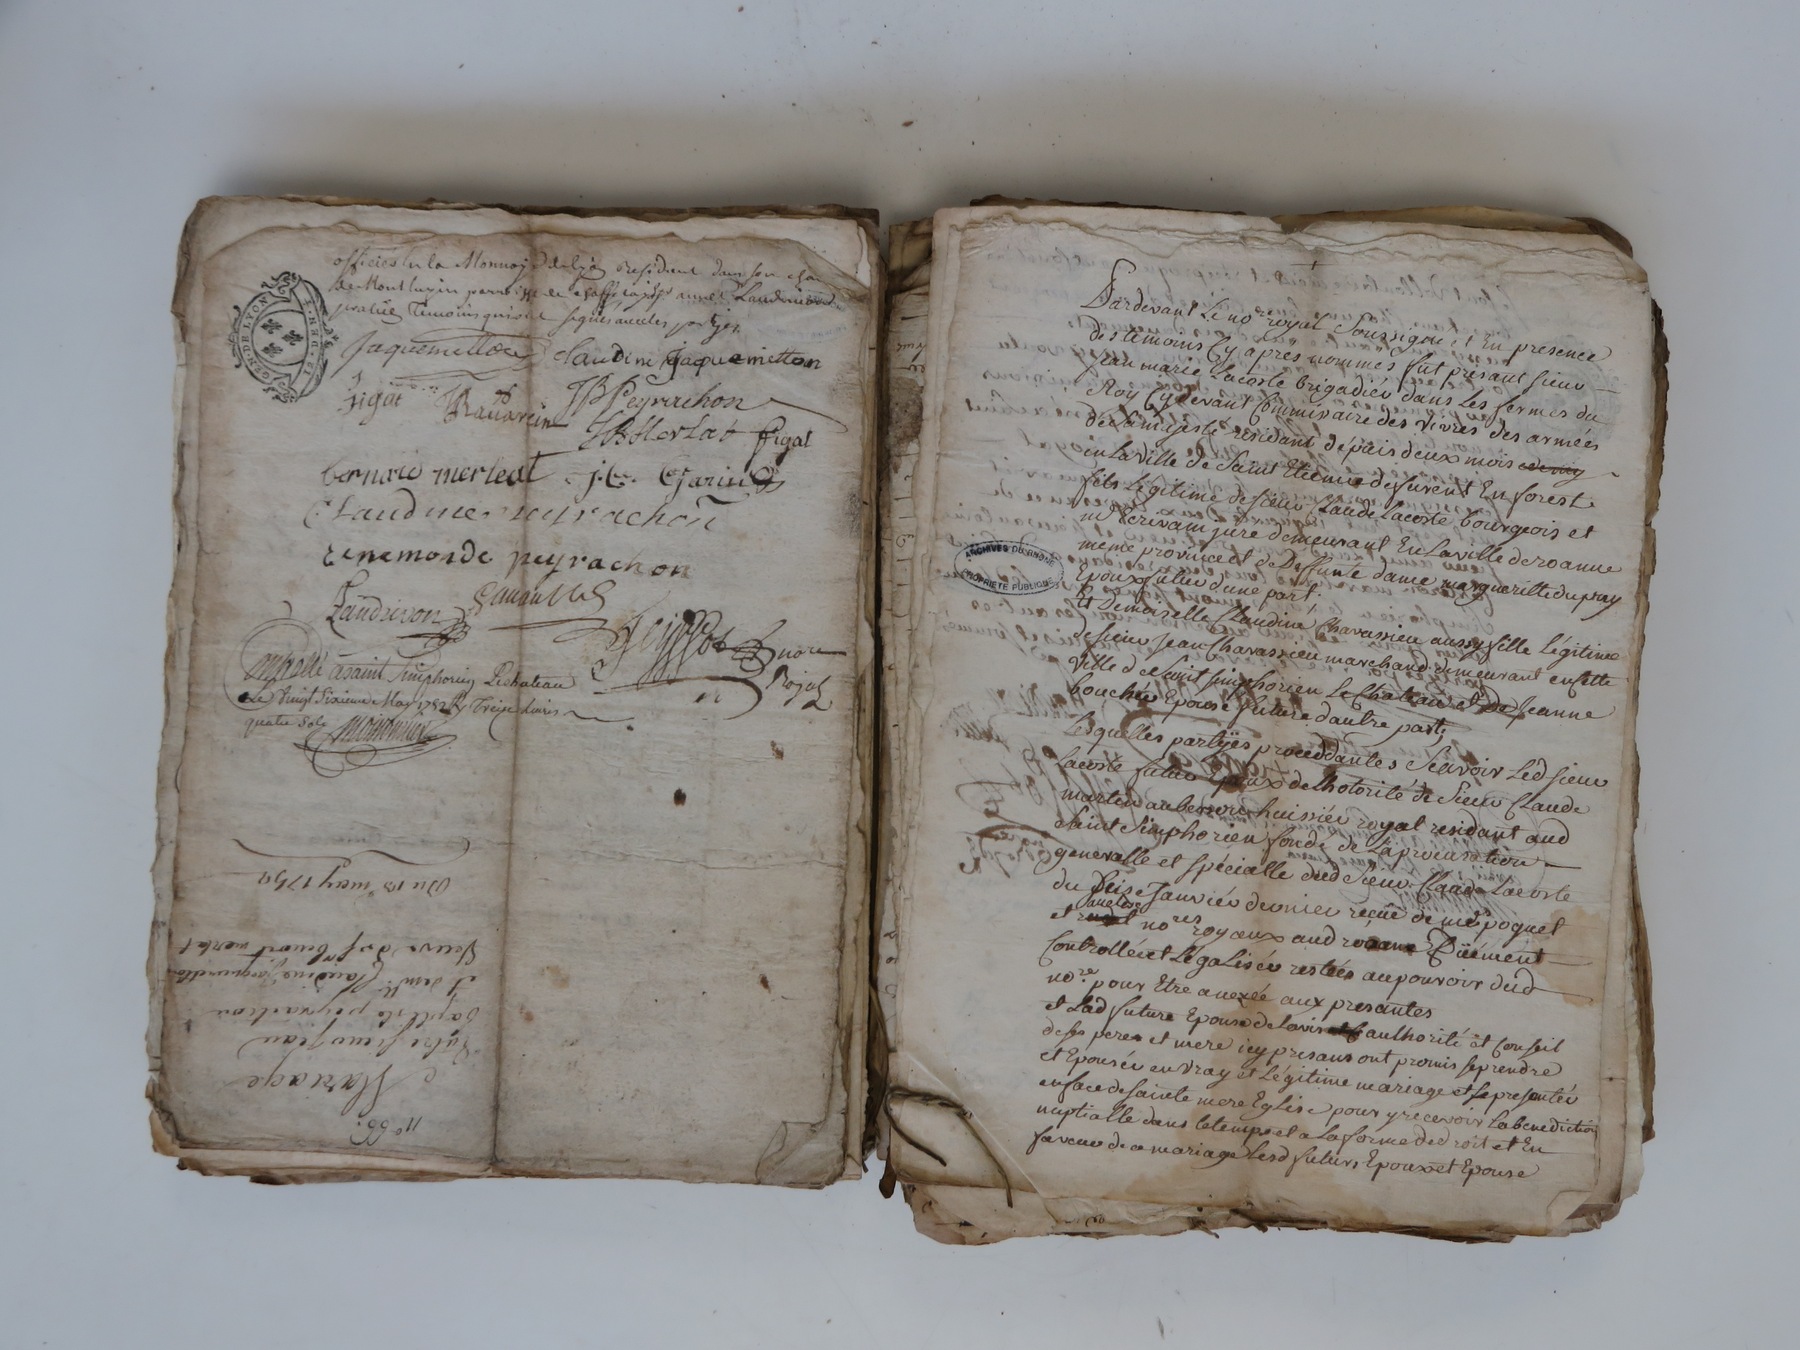 officier en la Monnoye de Lion Residant dans son
de Montluzin parroisse de
Temoins qui ont signés avec les partyes
GEN. DE LYON
Jaquemetton Claudine Jaquemetton
figat Ravarein JB Peyrachon
JB Merlat figat
bernard merleat j. C. Garin
Claudine peyrachon
renemonde peyrachon
Laudivon
nore
Royal
Controllé a saint Simphorien Lechateau
Le Vingt Sixieme May Treize Livres
quatre sols
Du 13e may 1759
n° 66.
Mariage
Entre sieur Jean
Baptiste peyrachon
et demlle Claudine Jacquemetton
Veuve du sr benoit merlat
Pardevant Le nore royal Soussigné et En presence
des temoins Cy après nommés fut présant sieur
Jean marie Lacoste brigadiér dans Les fermes du
Roy Cy devant Commissaire des vivres des armées
de Sa majesté résidant dépuis deux mois
en La Ville de Saint Etienne de furent En forest
fils Légitime de sieur Claude Lacoste bourgeois et
me Ecrivain juré demeurant En La ville de roanne
meme province et de Deffunte dame margueritte dupray
Epoux futur d'une part.
Et Demoiselle Claudine Chavassieu aussy fille Légitime
de sieur Jean Chavassieu marchand demeurant en cette
ville de Saint simphorien Le Chateau et de Jeanne
bouchér Epouse future d'autre part,
Lesquelles partyes procedantes Scavoir Led sieur
Lacoste futur Epoux de Lhotorité de Sieur Claude
martin huissiér royal résidant aud
Saint Simphorien fondé de La procuration
generalle et spécialle dud Sieur Claude Lacoste
du Seise Janviér dernier reçüe de mes poquet
et nores royaux aud roanne Düement
Controllée et Légalisée restée au pouvoir dud
nore pour Etre anexée aux presantes
et Lad future Epouse de Lavis authorité et Conseil
de ses pere et mere icy présans ont promis se prendre
et Epousér en vray et Légitime mariage et se presentér
en face de sainte mere Eglise pour y recevoir La benediction
nuptialle dans le temps et a La forme de droit et En
faveur de ce mariage Lesd futurs Epoux et Epouse
ARCHIVES DU RHONE
PROPRIETE PUBLIQUE